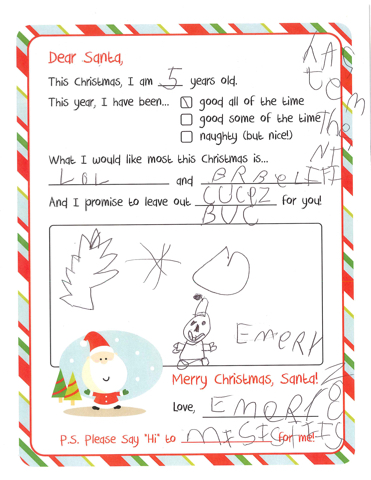 Dear Santa,
This Christmas, I am 5 years old.
This year, I have been... good all of the time
good some of the time
naughty (but nice!)
What I would like most this Christmas is...
LOL and BRBeLIII
And I promise to leave out CUCPZ for you!
BUC
EmeRY
Merry Christmas, Santa!
Love, EmeRY
P.S. Please Say "Hi" to for me!
The